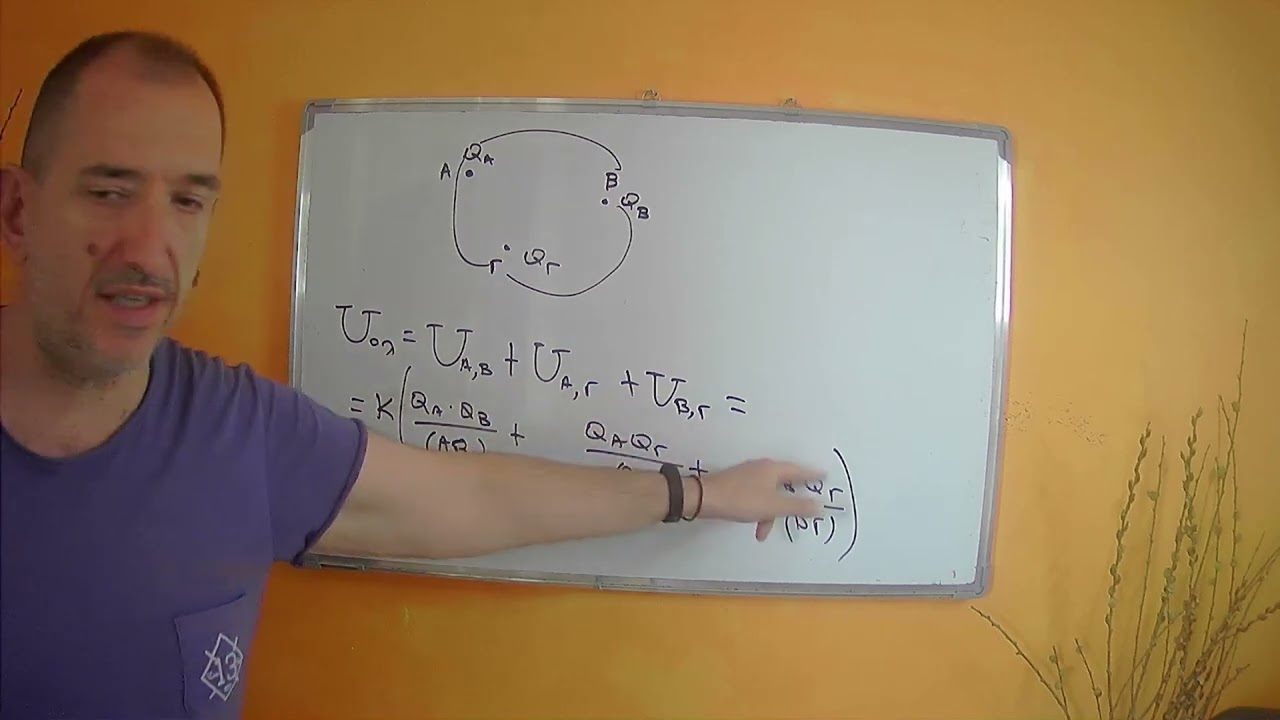 Q_A
A
B
Q_B
Γ Q_Γ
U_ολ = U_A,B + U_A,Γ + U_B,Γ =
= K( Q_A · Q_B + Q_A Q_Γ + Q_Γ )
(AB) (BΓ)
13